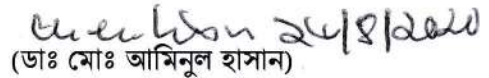 ২৪/৪/২০২০
(ডাঃ মোঃ আমিনুল হাসান)